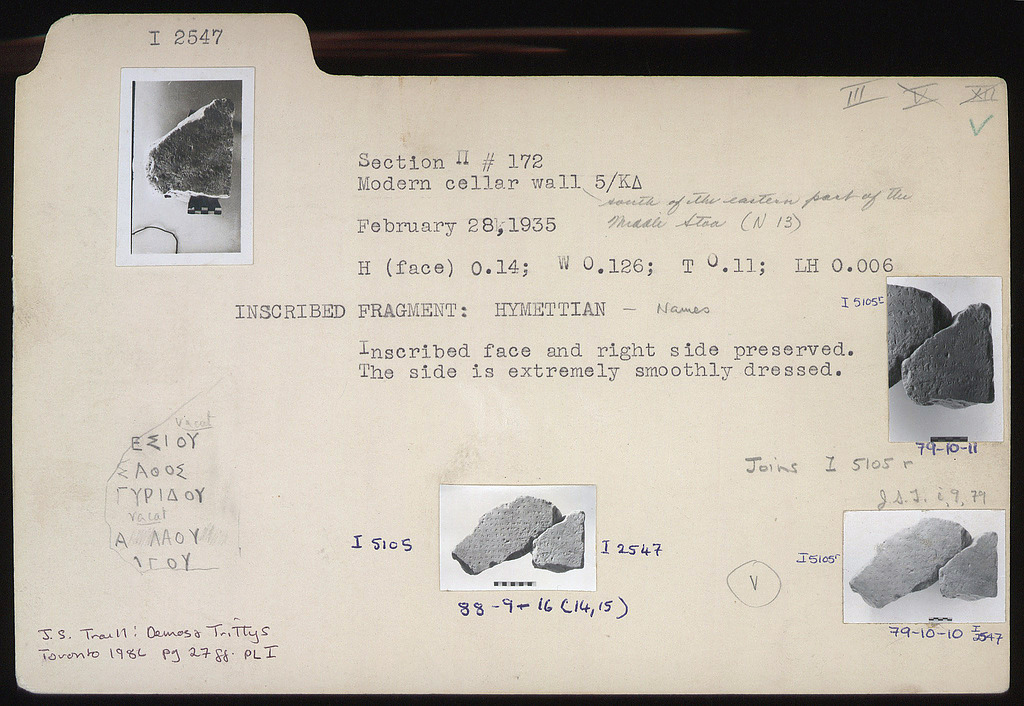 I 2547
III V XII
V
Section Π # 172
Modern cellar wall 5/ΚΔ
south of the eastern part of the
Middle Stoa (N 13)
February 28, 1935
H (face) 0.14; W 0.126; T 0.11; LH 0.006
INSCRIBED FRAGMENT: HYMETTIAN – Names
Inscribed face and right side preserved.
The side is extremely smoothly dressed.
I 5105r
79-10-11
Joins I 5105 r
vacat
ΕΣΙΟΥ
ΣΑΘΟΣ
ΓΥΡΙΔΟΥ
vacat
ΛΑΟΥ
ΓΟΥ
I 5105
I 2547
88-9-16 (14,15)
V
I 5105r
79-10-10 I 2547
J.S. Traill: Demos & Trittys
Toronto 1986 pg 27ff. PL I